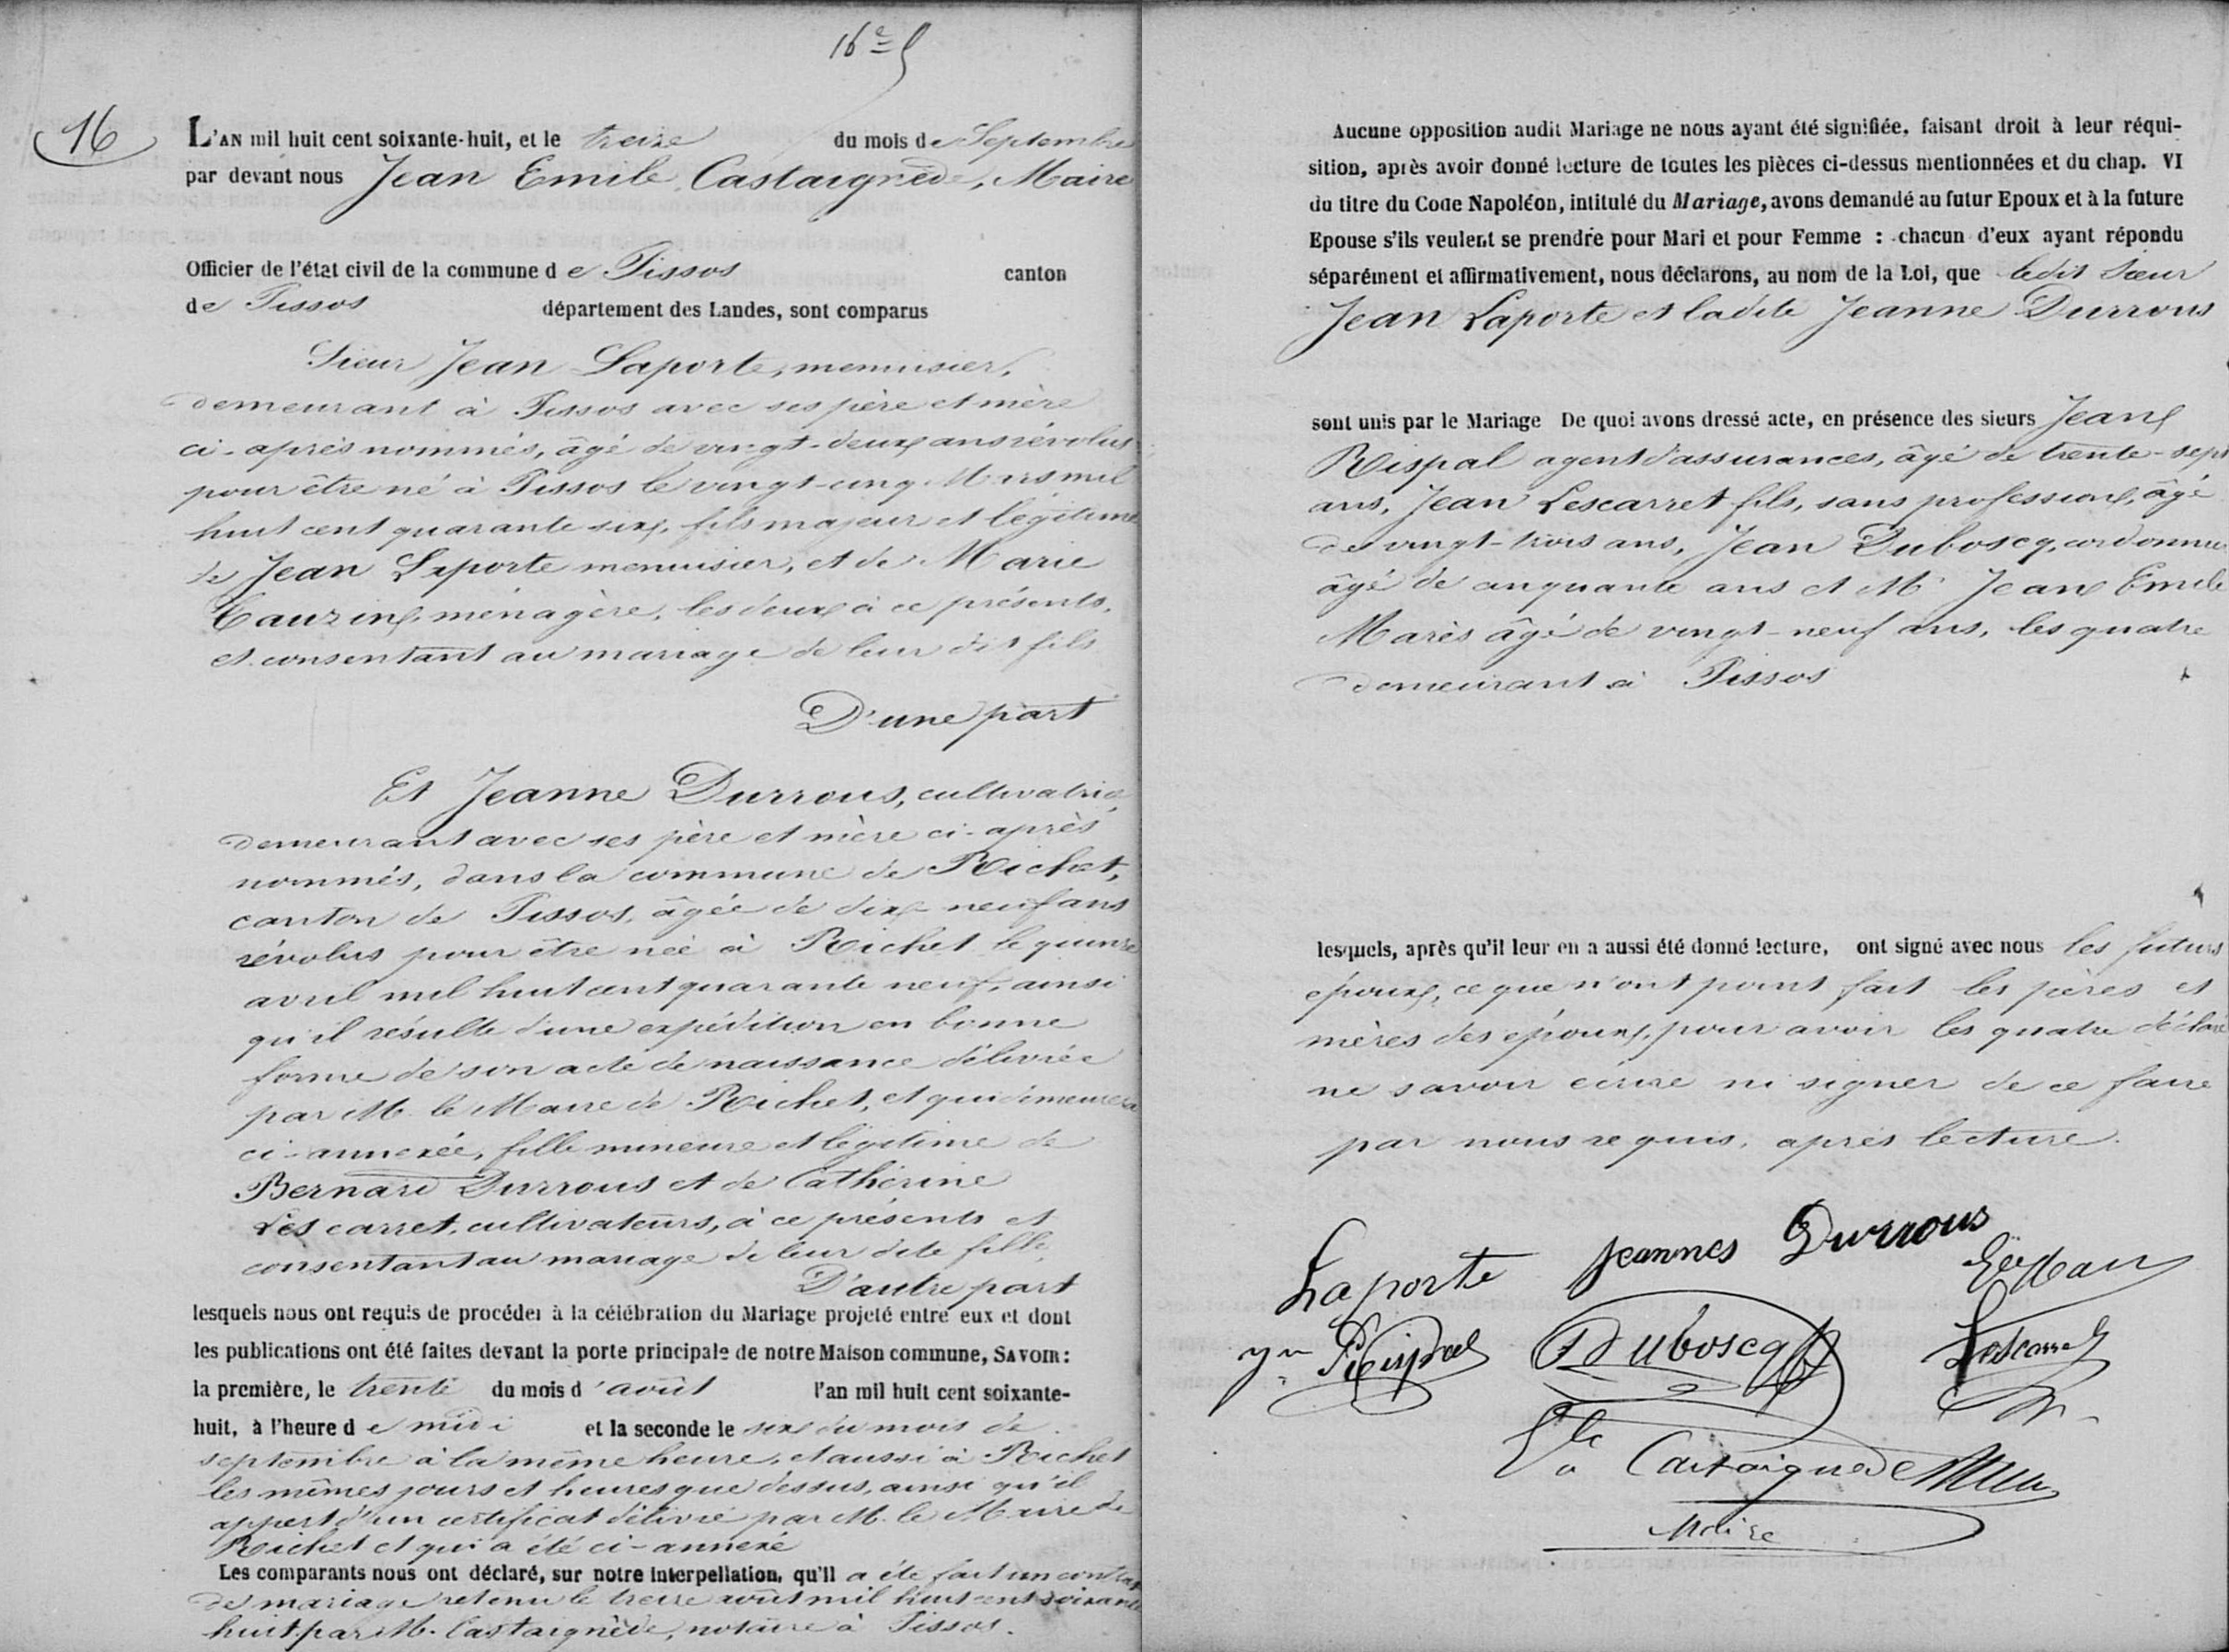 16e
16
L'AN mil huit cent soixante-huit, et le treize du mois de Septembre
par devant nous Jean Emile Castaignède, Maire
Officier de l'état civil de la commune de Pissos canton
de Pissos département des Landes, sont comparus
Sieur Jean Laporte, menuisier,
demeurant à Pissos avec ses père et mère
ci-après nommés, âgé de vingt-deux ans révolus
pour être né à Pissos le vingt-cinq Mars mil
huit cent quarante six, fils majeur et légitime
de Jean Laporte menuisier, et de Marie
Cauzin, ménagère, les deux à ce présents,
et consentant au mariage de leur dit fils
D'une part
Et Jeanne Durrous, cultivatrice,
demeurant avec ses père et mère ci-après
nommés, dans la commune de Richet,
canton de Pissos, âgée de dix-neuf ans
révolus pour être née à Richet le quinze
avril mil huit cent quarante neuf, ainsi
qu'il résulte d'une expédition en bonne
forme de son acte de naissance délivrée
par M. le Maire de Richet, et qui demeurera
ci-annexée, fille mineure et légitime de
Bernard Durrous et de Cathérine
Lescarret, cultivateurs, à ce présents et
consentant au mariage de leur dite fille,
D'autre part
lesquels nous ont requis de procéder à la célébration du Mariage projeté entre eux et dont
les publications ont été faites devant la porte principale de notre Maison commune, SAVOIR:
la première, le trente du mois d'août l'an mil huit cent soixante-
huit, à l'heure de midi et la seconde le six du mois de
septembre à la même heure, et aussi à Richet
les mêmes jours et heures que dessus, ainsi qu'il
appert d'un certificat délivré par M. le Maire de
Richet et qui a été ci-annexé
Les comparants nous ont déclaré, sur notre interpellation, qu'il a été fait un contrat
de mariage retenu le treize août mil huit cent soixante
huit par M. Castaignède, notaire à Pissos.
Aucune opposition audit Mariage ne nous ayant été signifiée, faisant droit à leur réqui-
sition, après avoir donné lecture de toutes les pièces ci-dessus mentionnées et du chap. VI
du titre du Code Napoléon, intitulé du Mariage, avons demandé au futur Epoux et à la future
Epouse s'ils veulent se prendre pour Mari et pour Femme : chacun d'eux ayant répondu
séparément et affirmativement, nous déclarons, au nom de la Loi, que ledit Sieur
Jean Laporte et ladite Jeanne Durrous
sont unis par le Mariage De quoi avons dressé acte, en présence des sieurs Jean
Rispal agent d'assurances, âgé de trente-sept
ans, Jean Lescarret fils, sans profession, âgé
de vingt-trois ans, Jean Duboscq, cordonnier
âgé de cinquante ans et Mr Jean Emile
Marès âgé de vingt-neuf ans, les quatre
demeurant à Pissos
lesquels, après qu'il leur en a aussi été donné lecture, ont signé avec nous les futurs
époux, ce que n'ont point fait les pères et
mères des époux, pour avoir les quatre déclaré
ne savoir écrire ni signer de ce faire
par nous requis, après lecture.
Laporte Jeannes Durrous
Jn Reispal Duboscq Lescarret
Castaignède
Maire